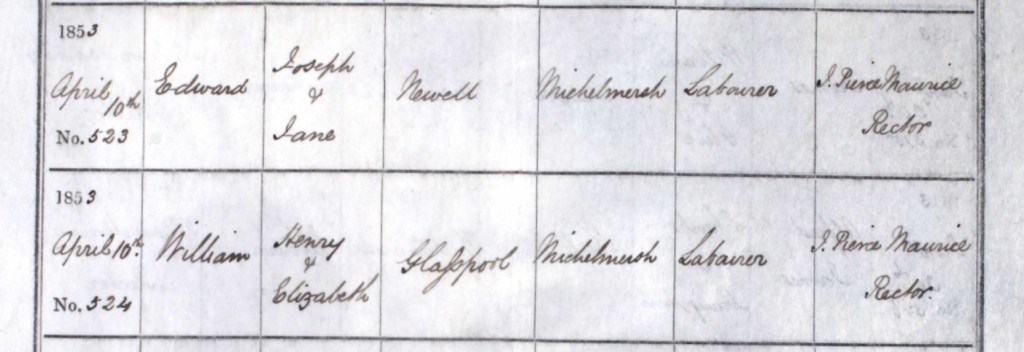 1853
April 10th
No. 523
Edward
Joseph
&
Jane
Newell
Michelmersh
Labourer
J. Pierce Maurice
Rector
1853
April 10th.
No. 524
William
Henry
&
Elizabeth
Glaſspool
Michelmersh
Labourer
J. Pierce Maurice
Rector.